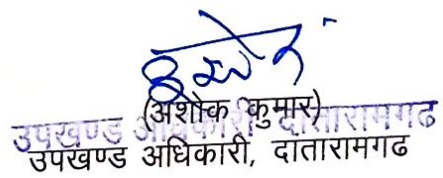 (अशोक कुमार)
उपखण्ड अधिकारी, दातारामगढ
उपखण्ड अधिकारी, दातारामगढ